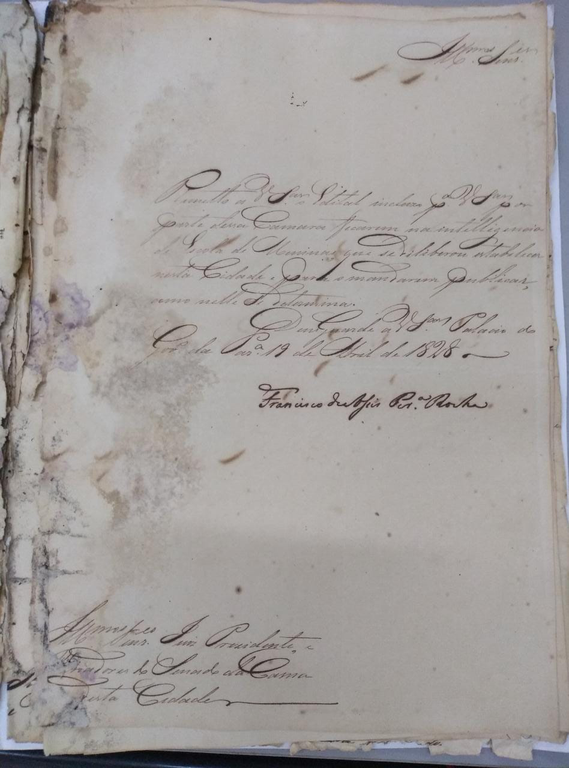 Illmos Snres
Remetto a V. Sas o Edital incluzo pa V. Sas por
parte dessa Camara ficarem na intelligencia
da Escola de Meninas que se deliberou estabelecer
nesta Cidade, e para o mandarem publicar,
como nelle se determina.
Deos Guarde a V. Sas Palacio do
Gov. da Para 19 de Abril de 1828
Francisco de Assis Pera Rocha
Illmos Snres Juiz Prezidente, e
Vreadores do Senado da Camara
desta Cidade